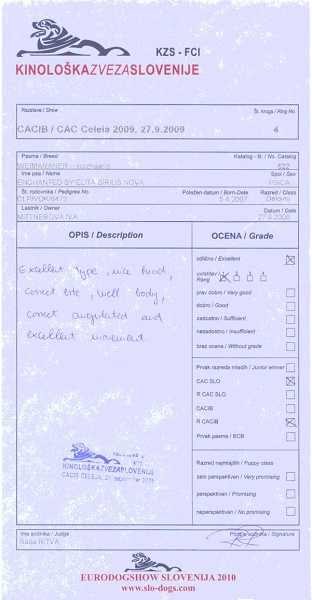 KZS - FCI
KINOLOŠKAZVEZASLOVENIJE
Razstava / Show
Št. kroga / Ring No.
CACIB / CAC Celeia 2009, 27.9.2009
4
Pasma / Breed
Katalog - št. / No. Catalog
WEIMARANER
622
Ime psa / Name
Spol / Sex
ENCHANTED BY ELITA SIRIUS NOVA
PSICA
Št. rodovnika / Pedigree No.
Poležen-datum / Born-Date
Razred / Class
CLP/VOK/6473
5.4.2007
Delovni
Lastnik / Owner
Datum / Date
MITTNEROVA IVA
27.9.2009
OPIS / Description
OCENA / Grade
Excellent type, nice head,
correct bite, well body,
correct angulated and
excellent movement.
odlično / Excellent
uvrstitev / Rang
1 2 3 4
prav dobro / Very good
dobro / Good
zadostno / Sufficient
nezadostno / Insufficient
brez ocene / Without grade
Prvak razreda mladih / Junior winner
CAC SLO
R CAC SLO
CACIB
R CACIB
Prvak pasme / BOB
Razred najmlajših / Puppy class
zelo perspektiven / Very promising
perspektiven / Promising
neperspektiven / No promising
KINOLOŠKAZVEZASLOVENIJE
CACIB CELEIA, 27. september 2009
Ime sodnika / Judge
Podpis sodnika / Signature
Rata RITVA
EURODOGSHOW SLOVENIJA 2010
www.slo-dogs.com